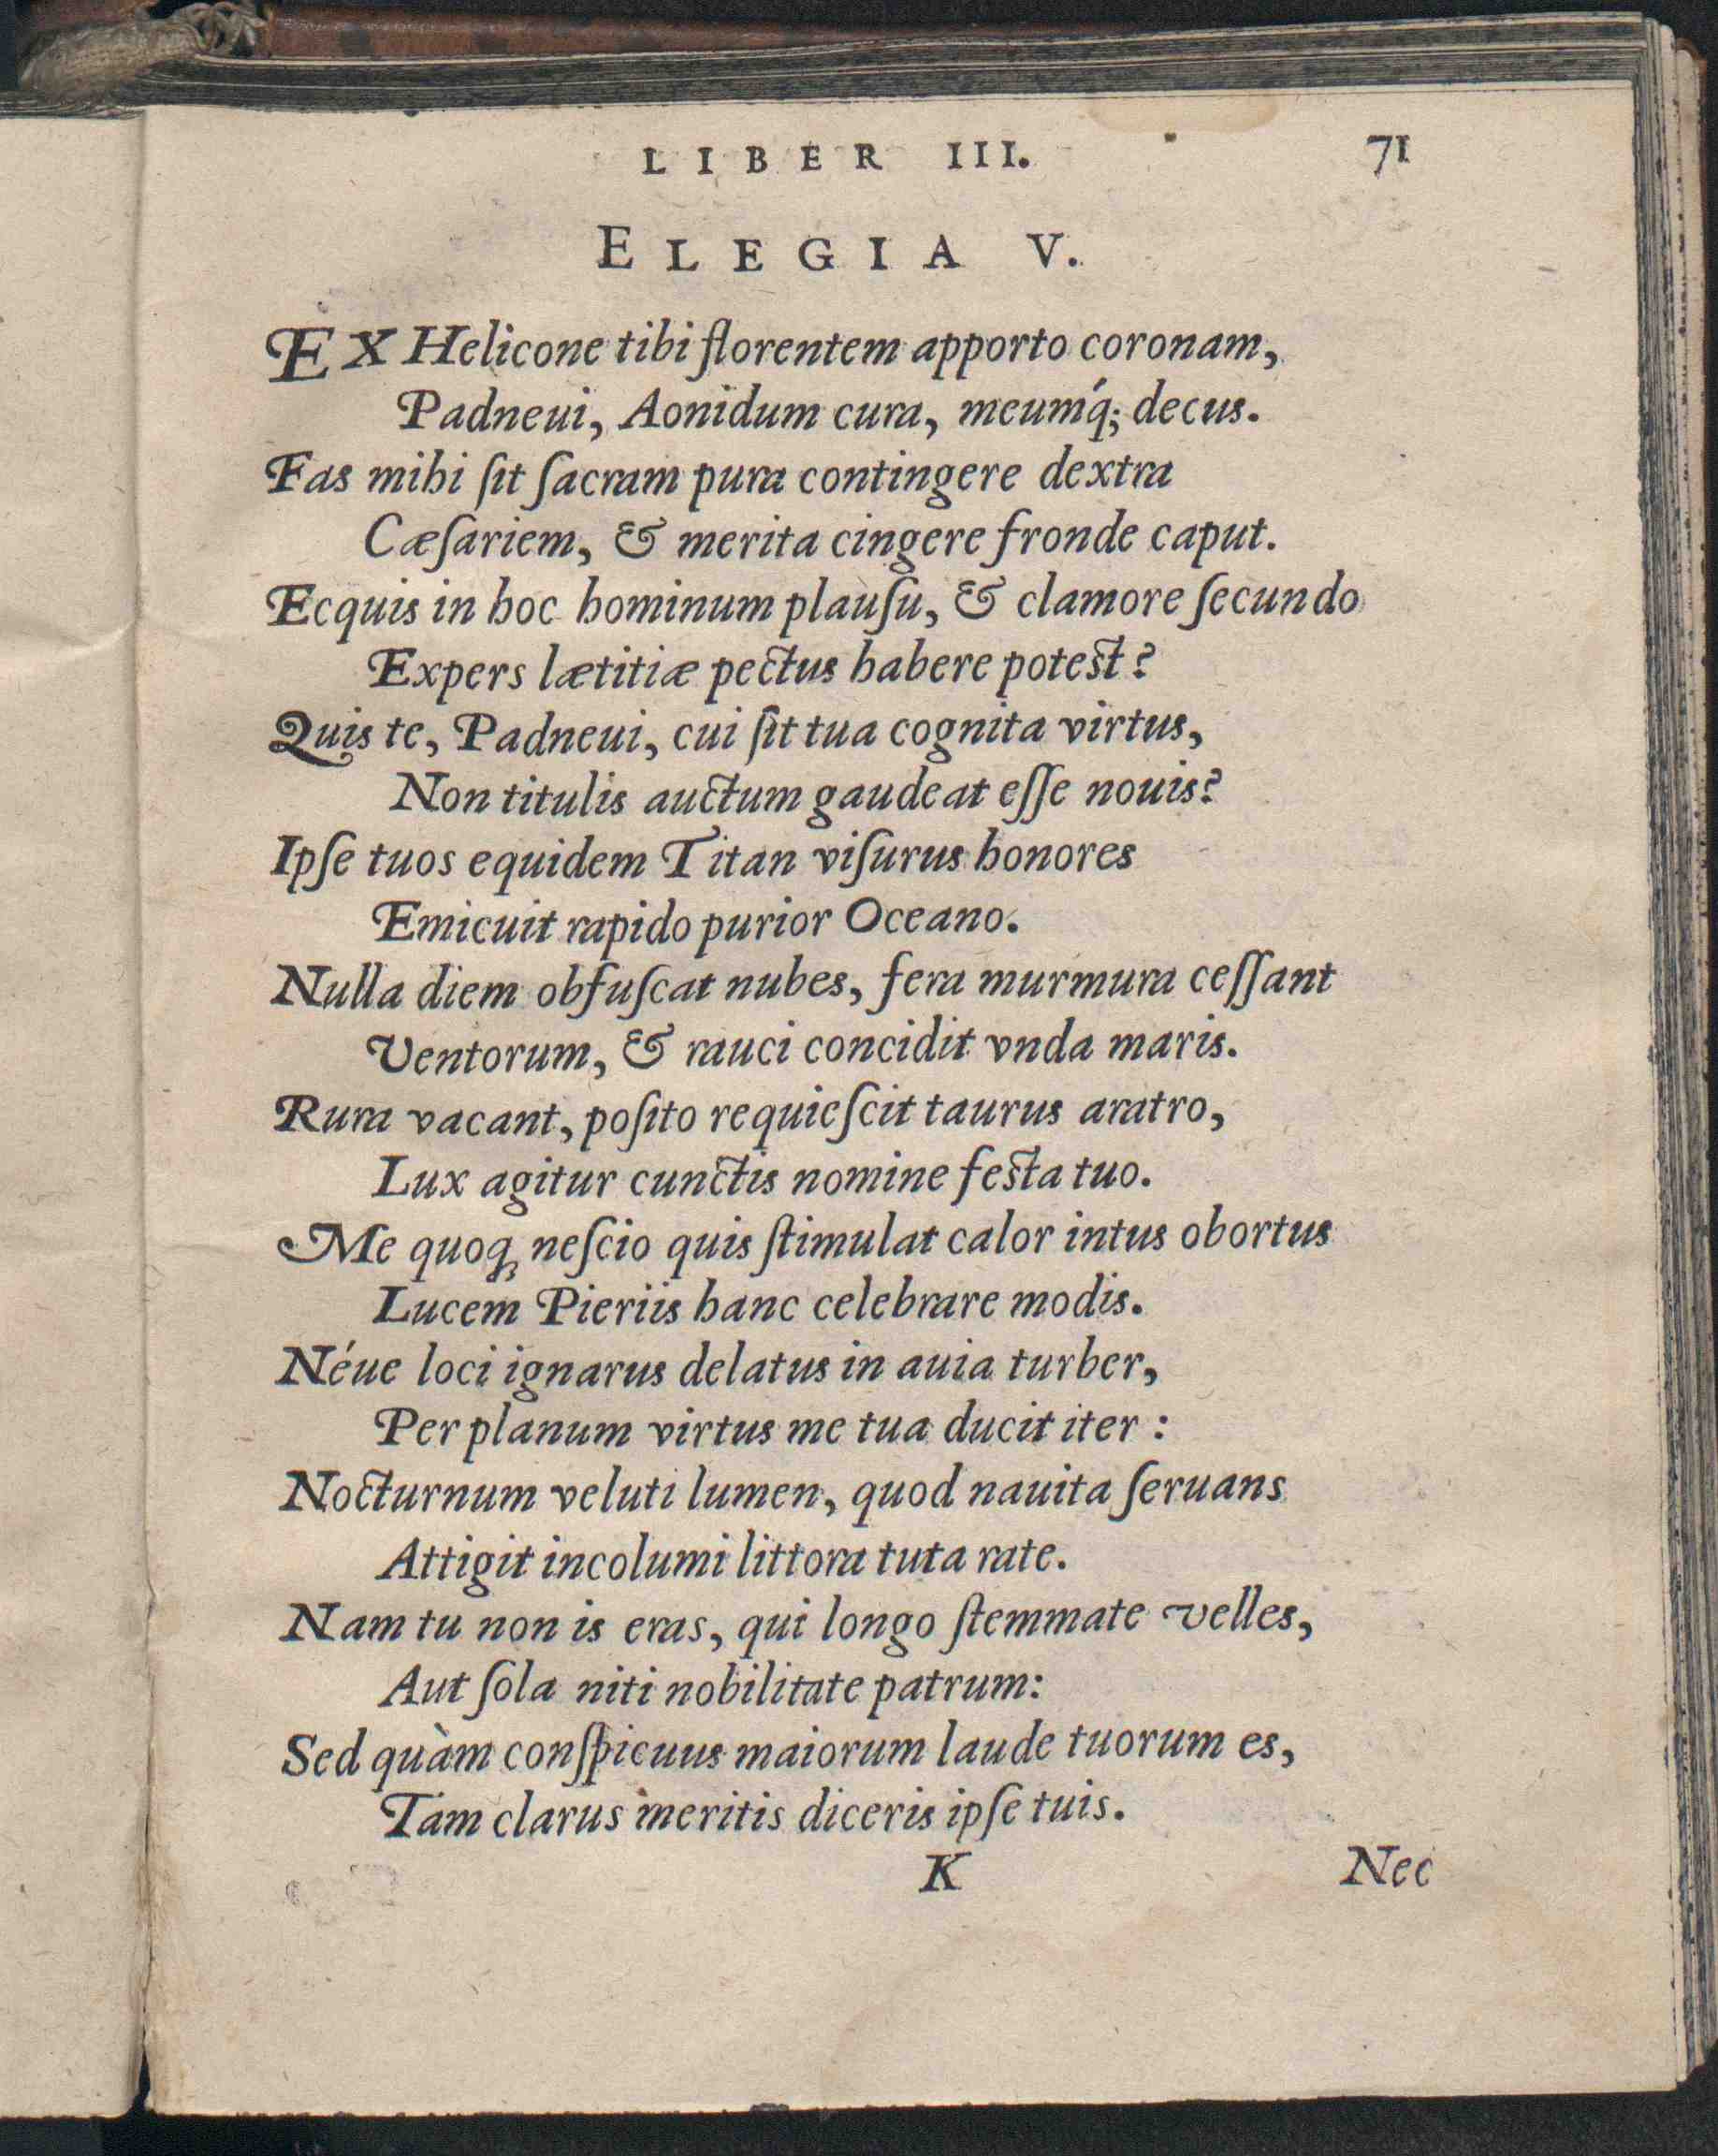 LIBER III. 71
ELEGIA V.
EX Helicone tibi florentem apporto coronam,
Padneui, Aonidum cura, meumq́; decus.
Fas mihi ſit ſacram pura contingere dextra
Cæſariem, & merita cingere fronde caput.
Ecquis in hoc hominum plauſu, & clamore ſecundo
Expers lætitiæ pectus habere potest?
Quis te, Padneui, cui ſit tua cognita virtus,
Non titulis auctum gaudeat eſſe nouis?
Ipſe tuos equidem Titan viſurus honores
Emicuit rapido purior Oceano.
Nulla diem obfuſcat nubes, fera murmura ceſſant
Ventorum, & rauci concidit vnda maris.
Rura vacant, poſito requieſcit taurus aratro,
Lux agitur cunctis nomine festa tuo.
Me quoq; neſcio quis ſtimulat calor intus obortus
Lucem Pieriis hanc celebrare modis.
Néue loci ignarus delatus in auia turber,
Per planum virtus me tua ducit iter :
Nocturnum veluti lumen, quod nauita ſeruans
Attigit incolumi littora tuta rate.
Nam tu non is eras, qui longo ſtemmate velles,
Aut ſola niti nobilitate patrum:
Sed quàm conſpicuus maiorum laude tuorum es,
Tam clarus meritis diceris ipſe tuis.
K Nec